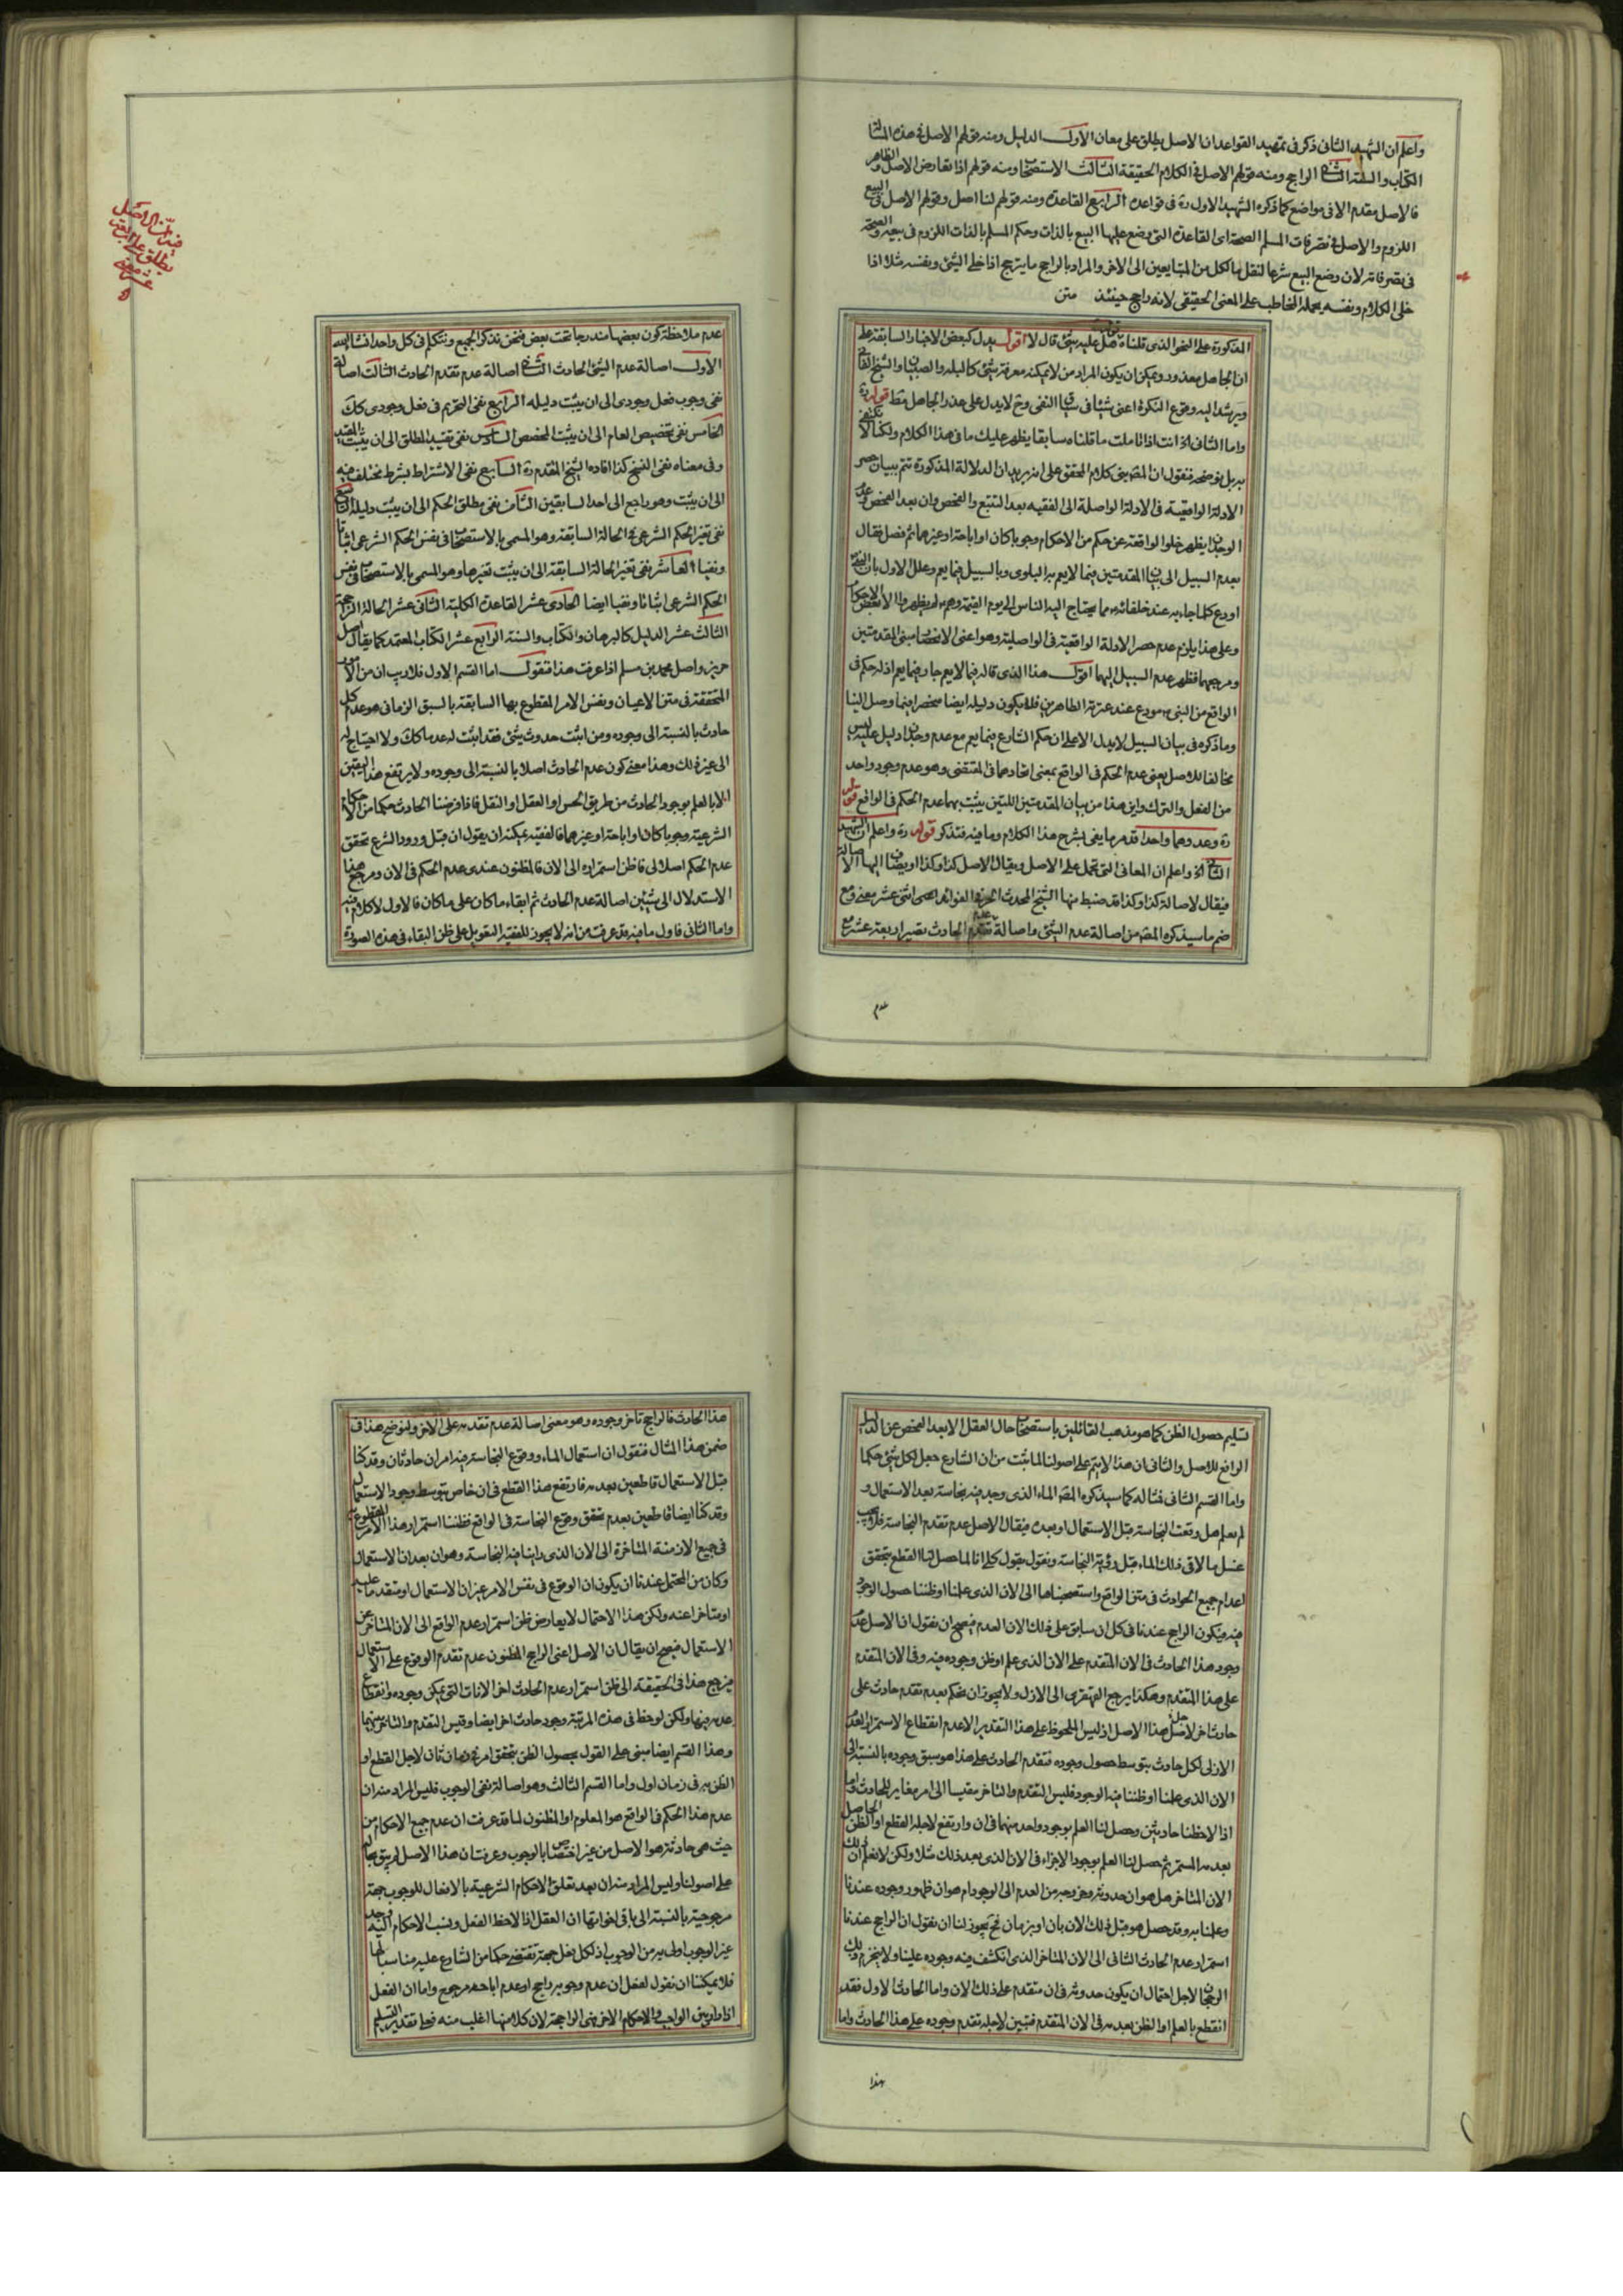 واعلم ان الشهيد الثانى ذكر فى تمهيد القواعد ان الاصل يطلق على معان الاول الدليل ومنه قولهم الاصل فى هذه المسئلة
الكتاب والسنة الثانى الراجح ومنه قولهم الاصل فى الكلام الحقيقة الثالث الاستصحاب ومنه قولهم اذا تعارض الاصل والظاهر
فالاصل مقدم الا فى مواضع كما ذكره الشهيد الاول ره فى قواعده الرابع القاعدة ومنه قولهم لنا اصل وقولهم الاصل فى البيع
اللزوم والاصل فى تصرفات المسلم الصحة اى القاعدة التى وضع عليها البيع بالذات وحكم المسلم بالذات اللزوم فى بيعه والصحة
فى تصرفاته لان وضع البيع شرعا لنقل مال كل من المتبايعين الى الاخر والمراد بالراجح ما يترجح اذا خلى الشئ ونفسه مثلا اذا
خلى الكلام ونفسه يحمله المخاطب على المعنى الحقيقى لانه راجح حينئذ متن
المذكورة على النحو الذى قلناه هل عليه شئ قال لا اقول يدل كبعض الاخبار السابقة على
ان الجاهل معذور ويمكن ان يكون المراد من لا يمكنه معرفة شئ كالبله والصبيان والشيخ
ويرشد اليه وقوع النكرة اعنى شيئا فى سياق النفى وح لا يدل على عذر الجاهل مط قوله ره
واما الثانى الخ انت اذا تاملت ما قلناه سابقا يظهر عليك ما فى هذا الكلام ولكنا لا نكتفى
به بل نوضحه فنقول ان المص بنى كلام المحقق على انه يريد ان الدلالة المذكورة تتم ببيان حصر
الادلة الواقعية فى الادلة الواصلة الى الفقيه بعد التتبع والفحص وان بعد الفحص وعدم
الوجدان يظهر خلو الواقعة عن حكم من الاحكام وجوبا كان او اباحة او غيرهما ثم فصل فقال
بعدم السبيل الى بيان المقدمتين فيما لا يعم به البلوى وبالسبيل فيما يعم وعلل الاول بان النبى
اودع كلما جاء به عند خلفائه مما يحتاج اليه الناس الى يوم القيمة وهم لم يظهروا الا بعض الاحكام
وعلى هذا يلزم عدم حصر الادلة الواقعية فى الواصلية وهو اعنى الانحصار مبنى المقدمتين
ومرجعهما فظهر عدم السبيل اليهما اقول هذا الذى قاله فيما لا يعم جار فيما يعم اذ له حكم فى
الواقع من النبى مودع عند عترته الطاهرين فلا يكون دليله ايضا منحصرا فيما وصل الينا
وما ذكره فى بيان السبيل لا يدل الا على ان حكم الشارع فيما يعم مع عدم وجدان دليل عليه ليس
مخالفا للاصل يعنى عدم الحكم فى الواقع بمعنى اتحادهما فى المقتضى وهو عدم وجود واحد
من الفعل والترك واين هذا من بيان المقدمتين اللتين يثبت بهما عدم الحكم فى الواقع قوله
ره وعددهما واحدا قد مر ما يفى بشرح هذا الكلام وما فيه فتذكر قوله ره واعلم ان الشهيد
الثانى الخ واعلم ان المعانى التى تحمل على الاصل ويقال الاصل كذا وكذا او يضاف اليها الاصالة
فيقال لاصالة كذا وكذا قد ضبط منها الشيخ المحدث الحر فى الفوائد احدى اثنى عشر معنى ومع
ضم ما سيذكره المص من اصالة عدم الشئ واصالة عدم تقدم الحادث يصير اربعة عشر مع
عدم
فيه ان الاصل
يطلق على اربعة
عشر معنى
عدم ملاحظة كون بعضها مندرجا تحت بعض فنحن نذكر الجميع ونتكلم فى كل واحد انشاء الله
الاول اصالة عدم الشئ الحادث الثانى اصالة عدم تقدم الحادث الثالث اصالة
نفى وجوب فعل وجودى الى ان يثبت دليله الرابع نفى التحريم فى فعل وجودى كك
الخامس نفى تخصيص العام الى ان يثبت المخصص السادس نفى تقييد المطلق الى ان يثبت المقيد
وفى معناه نفى النسخ كذا افاده الشيخ المقدم ره السابع نفى الاشتراط بشرط مختلف فيه
الى ان يثبت وهو راجع الى احد السابقين الثامن نفى مطلق الحكم الى ان يثبت دليله التاسع
نفى تغير الحكم الشرعى فى الحالة السابقة وهو المسمى بالاستصحاب فى نفس الحكم الشرعى اثباتا
ونفيا العاشر نفى تغير الحالة السابقة الى ان يثبت تغيرها وهو المسمى بالاستصحاب فى نفس
الحكم الشرعى اثباتا ونفيا ايضا الحادى عشر القاعدة الكلية الثانى عشر الحالة الراجحة
الثالث عشر الدليل كالبرهان والكتاب والسنة الرابع عشر الكتاب المعتمد كما يقال اصل
حريز واصل محمد بن مسلم اذا عرفت هذا فنقول اما القسم الاول فلا ريب ان من الامور
المتحققة فى متن الاعيان ونفس الامر المقطوع بها السابقة بالسبق الزمانى هو عدم كل
حادث بالنسبة الى وجوده ومن اثبت حدوث شئ فقد اثبت له عدما كك ولا احتياج له
الى غير ذلك وهذا معنى كون عدم الحادث اصلا بالنسبة الى وجوده ولا يرتفع هذا اليقين
الا بالعلم بوجود الحادث من طريق الحس او العقل او النقل فاذا فرضنا الحادث حكما من الاحكام
الشرعية وجوبا كان او اباحة او غيرهما فالفقيه يمكنه ان يقول ان قبل ورود الشرع تحقق
عدم الحكم اصلا لى فاظن استمراره الى الان فالمظنون عندى عدم الحكم فى الان ومرجع هذا
الاستدلال الى شيئين اصالة عدم الحادث ثم ابقاء ما كان على ما كان فالاول لا كلام فيه
واما الثانى فاول ما فيه قد عرفت من انه لا يجوز للفقيه التعويل على ظن البقاء فى هذه الصورة
تسليم حصول الظن كما هو مذهب القائلين باستصحاب حال العقل الا بعد الفحص عن الدليل
الرافع للاصل والثانى ان هذا لا يتم على اصولنا لما ثبت من ان الشارع جعل لكل شئ حكما
واما القسم الثانى فمثاله كما سيذكره المص الماء الذى وجد فيه نجاسة بعد الاستعمال و
لم يعلم هل وقعت النجاسة قبل الاستعمال او بعده فيقال الاصل عدم تقدم النجاسة فلا يجب
غسل ما لاقى ذلك الماء قبل رؤية النجاسة ونقول بقول كلى انا لما حصل لنا القطع بتحقق
اعدام جميع الحوادث فى متن الواقع واستصحبناها الى الان الذى علمنا او ظننا حصول الوجود
فيه فيكون الراجح عندنا فى كل ان سابق على ذلك الان العدم فيصح ان نقول ان الاصل عدم
وجود هذا الحادث فى الان المتقدم على الان الذى علم او ظن وجوده فيه وفى الان المتقدم
على هذا المتقدم وهكذا يرجع القهقرى الى الازل ولا يجوز ان نحكم بعدم تقدم حادث على
حادث اخر لاجل هذا الاصل اذ ليس الملحوظ على هذا التقدير الا عدم انقطاع الاستمرار العدم
الازلى لكل حادث بتوسط حصول وجوده فتقدم الحادث على هذا هو سبق وجوده بالنسبة الى
الان الذى علمنا او ظننا فيه الوجود فليس التقدم والتاخر مقيسا الى امر مغاير للحادث واما
اذا لاحظنا حادثين وحصل لنا العلم بوجود واحد منهما فى ان وارتفع لاجله القطع او الظن الحاصل
بعدمه المستمر ثم حصل لنا العلم بوجود الاخر فى الان الذى بعد ذلك مثلا ولكن لا نعلم ان ذلك
الان المتاخر هل هو ان حدوثه وخروجه من العدم الى الوجود ام هو ان ظهور وجوده عندنا
وعلمنا به وقد حصل هو قبل ذلك الان بان او بزمان فح يجوز لنا ان نقول ان الراجح عندنا
استمرار عدم الحادث الثانى الى الان المتاخر الذى انكشف فيه وجوده علينا ولا ينخرم ذلك
الرجحان لاجل احتمال ان يكون حدوثه فى ان متقدم على ذلك الان واما الحادث الاول فقد
انقطع بالعلم او الظن بعدمه فى الان المتقدم فتبين لاجله تقدم وجوده على هذا الحادث واما
هذا
هذا الحادث فالراجح تاخر وجوده وهو معنى اصالة عدم تقدمه على الاخر ولنوضح هذا فى
ضمن هذا المثال فنقول ان استعمال الماء ووقوع النجاسة فيه امران حادثان وقد كنا
قبل الاستعمال قاطعين بعدمه فارتفع هذا القطع فى ان خاص بتوسط وجود الاستعمال
وقد كنا ايضا قاطعين بعدم تحقق وقوع النجاسة فى الواقع فظننا استمرار هذا الامر المقطوع
فى جميع الازمنة المتاخرة الى الان الذى راينا فيه النجاسة وهو ان بعد ان الاستعمال
وكان من المحتمل عندنا ان يكون ان الوقوع فى نفس الامر عين ان الاستعمال او متقدما عليه
او متاخرا عنه ولكن هذا الاحتمال لا يعارض ظن استمرار عدم الواقع الى الان المتاخر عن
الاستعمال فيصح ان يقال ان الاصل اعنى الراجح المظنون عدم تقدم الوقوع على الاستعمال
فيرجع هذا فى الحقيقة الى ظن استمرار عدم الحادث اخر الانات التى يمكن وجوده وانقطاع
عدمه فيها ولكن لوحظ فى هذه المرتبة وجود حادث اخر ايضا وقيس التقدم والتاخر بينهما
وهذا القسم ايضا مبنى على القول بحصول الظن بتحقق امر فى زمان ثان لاجل القطع او
الظن به فى زمان اول واما القسم الثالث وهو اصالة نفى الوجوب فليس المراد منه ان
عدم هذا الحكم فى الواقع هو المعلوم او المظنون لما قد عرفت ان عدم جميع الاحكام من
حيث هى حادثة هو الاصل من غير اختصاص بالوجوب وعرفت ان هذا الاصل لم يبق بحاله
على اصولنا وليس المراد منه ان بعد تعلق الاحكام الشرعية بالافعال للوجوب جهة
مرجوحية بالنسبة الى باقى اخواتها اذ العقل اذا لاحظ الفعل ونسب الاحكام اليه وجد
غير الوجوب اولى به من الوجوب اذ لكل فعل جهة تقتضى حكما من الشارع عليه مناسبا لها
فلا يمكننا ان نقول لفعل ان عدم وجوبه راجح او عدم اباحته مرجوح واما ان الفعل
اذا دار بين الواجب والاحكام الاخر فهى الراجحة لان كلا منها اغلب منه فعلى تقدير التسليم